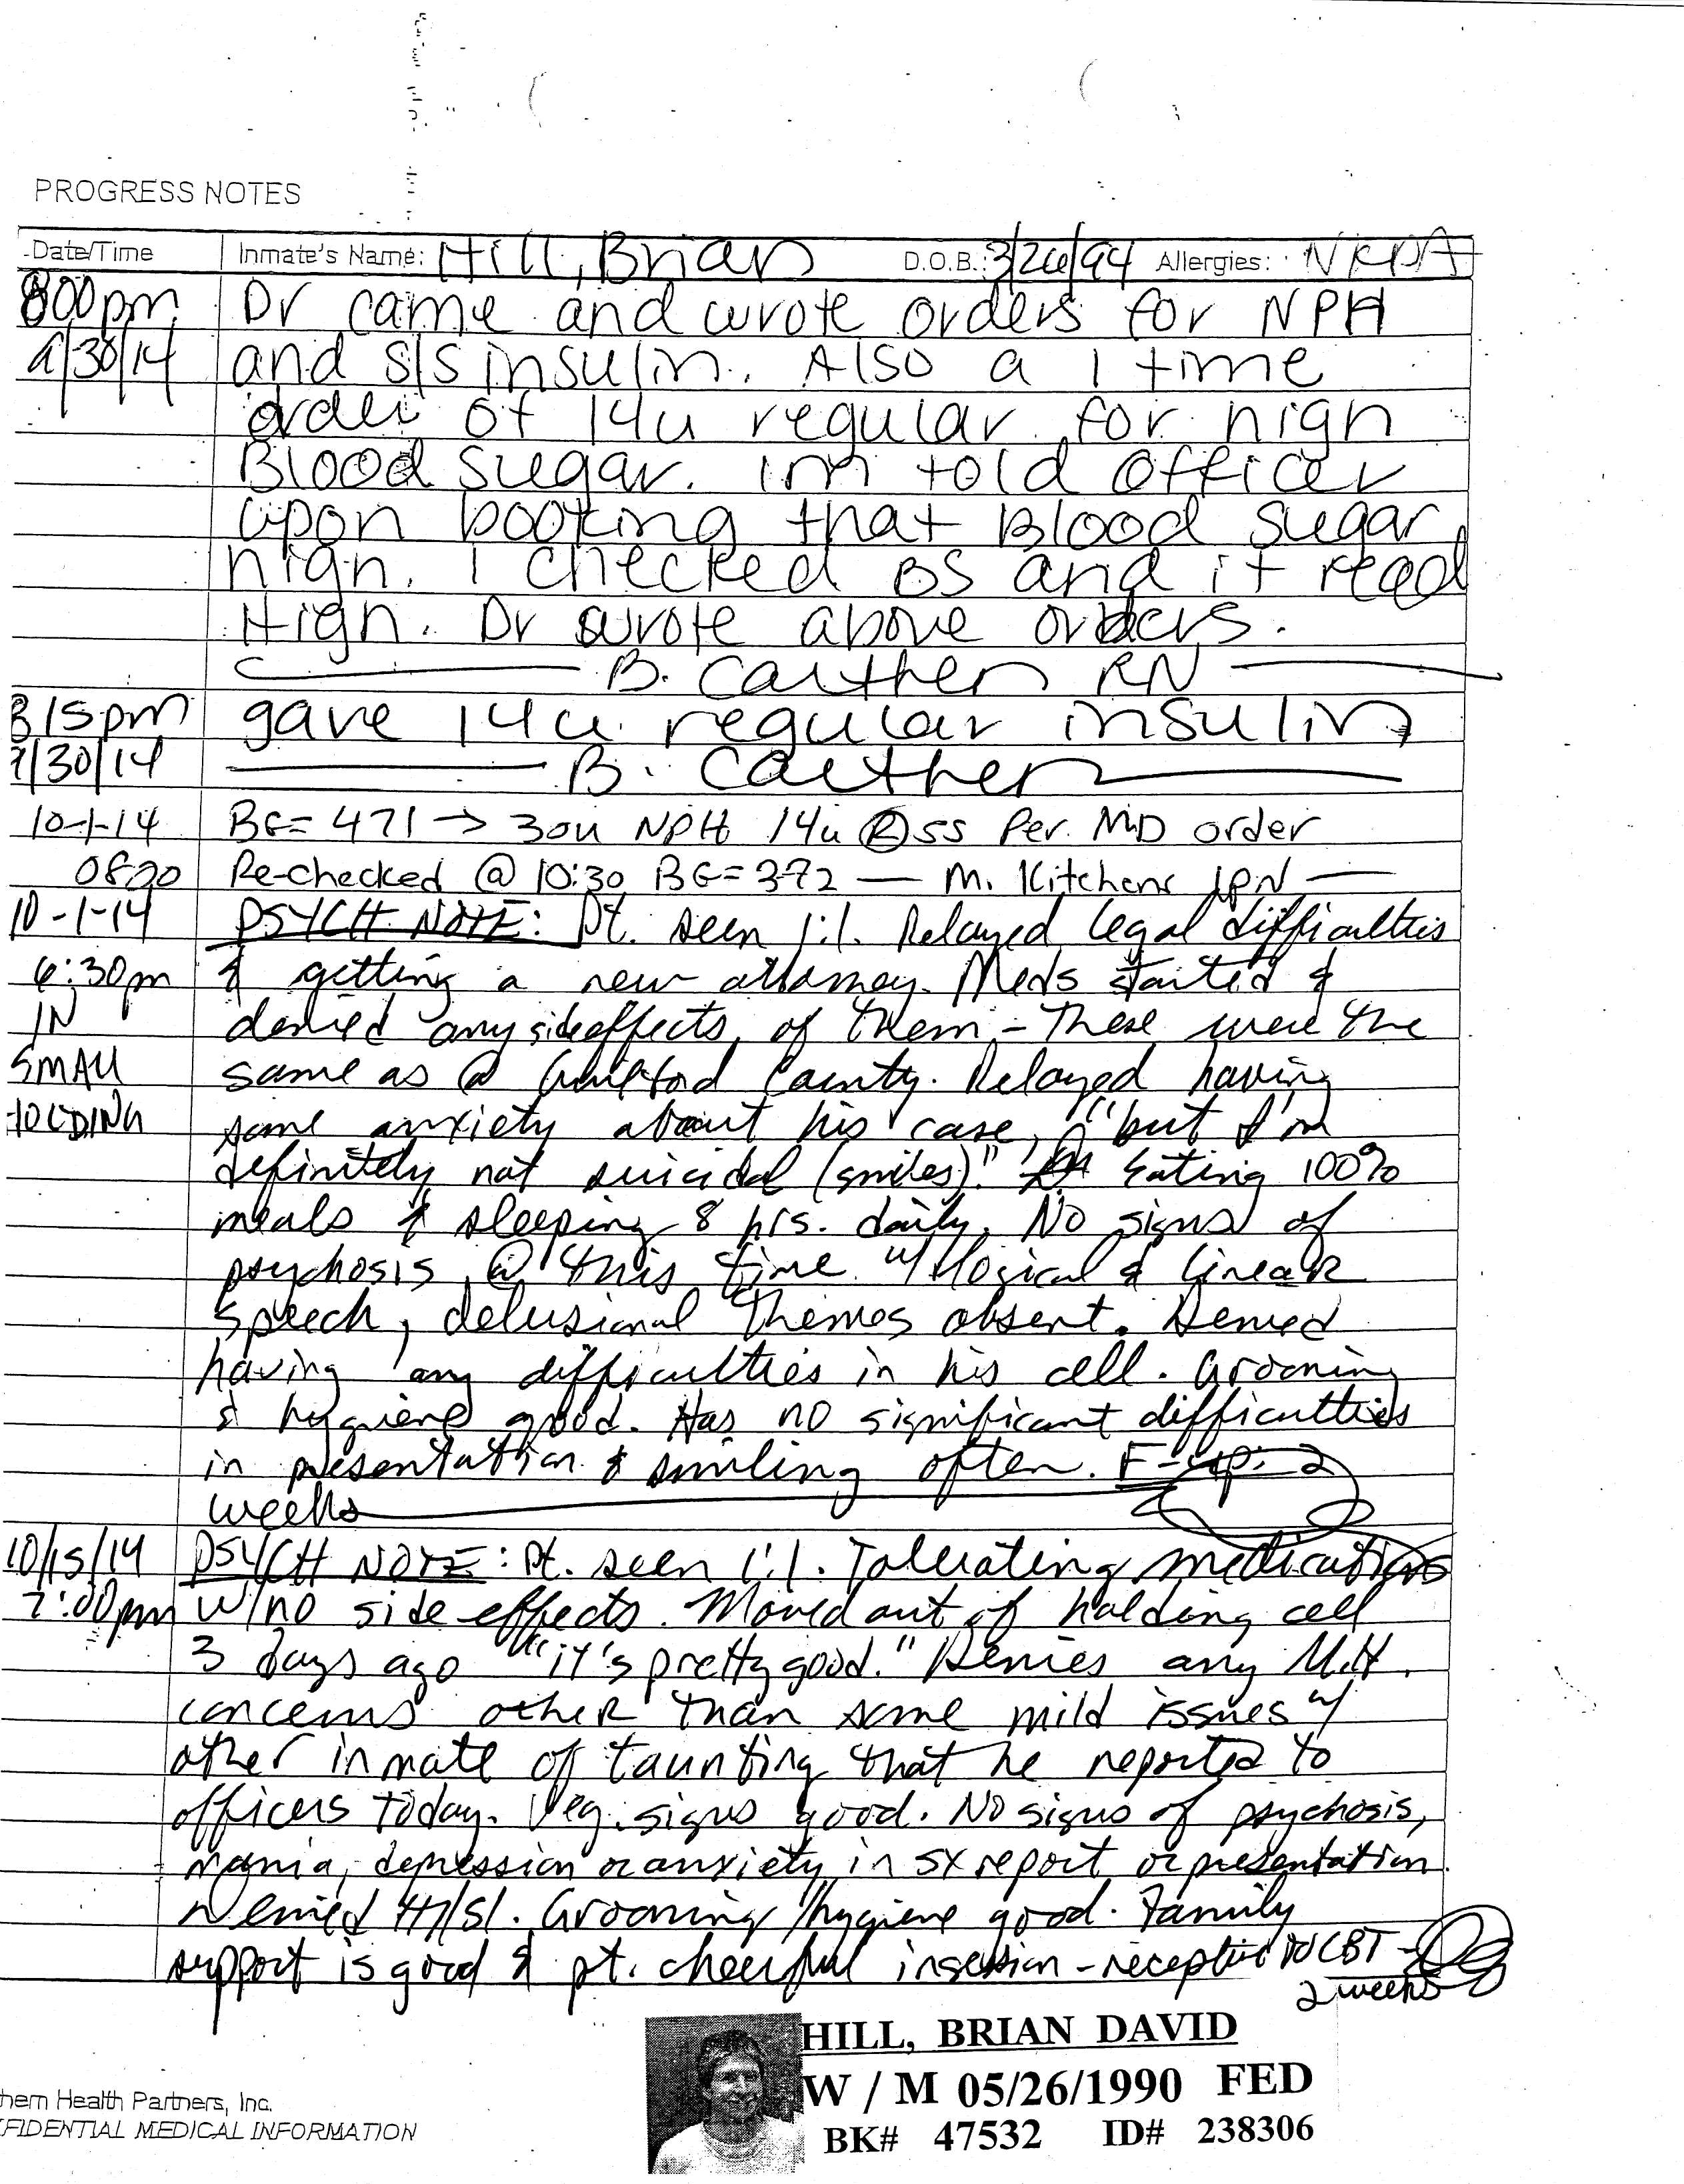 PROGRESS NOTES
Date/Time Inmate's Name: Hill, Brian D.O.B.: 3/26/94 Allergies: NKDA
800pm Dr came and wrote orders for NPH
9/30/14 and s/s insulin. Also a 1 time
order of 14u regular for high
Blood sugar. Im told officer
upon booking that Blood sugar
high. I checked BS and it read
High. Dr wrote above orders.
B. Caither RN
815pm gave 14u regular insulin
9/30/14 B. Caither
10-1-14 BG= 471 → 30u NPH 14u Ⓡ SS Per MD order
0820 Re-checked @ 10:30 BG=372 — M. Kitchens LPN —
10-1-14 PSYCH NOTE: Pt. seen 1:1. Relayed legal difficulties
6:30pm & getting a new attorney. Meds started &
IN denied any side effects of them - These were the
SMALL same as @ Guilford County. Relayed having
HOLDING some anxiety about his case, "but I'm
definitely not suicidal (smiles)." Eating 100%
meals & sleeping 8 hrs. daily. No signs of
psychosis @ this time w/ logical & linear
speech, delusional themes absent. Denied
having any difficulties in his cell. Grooming
& hygiene good. Has no significant difficulties
in presentation & smiling often. F-up: 2
weeks
10/15/14 PSYCH NOTE: Pt. seen 1:1. Tolerating medications
7:00pm w/no side effects. Moved out of holding cell
3 days ago "it's pretty good." Denies any M.H.
concerns other than some mild issues w/
other inmate of taunting that he reported to
officers today. Veg. signs good. No signs of psychosis,
mania, depression or anxiety in sx report or presentation.
Denied HI/SI. Grooming/hygiene good. Family
support is good & pt. cheerful in session - receptive to CBT -
2 weeks
HILL, BRIAN DAVID
W / M 05/26/1990 FED
BK# 47532 ID# 238306
hern Health Partners, Inc.
FIDENTIAL MEDICAL INFORMATION